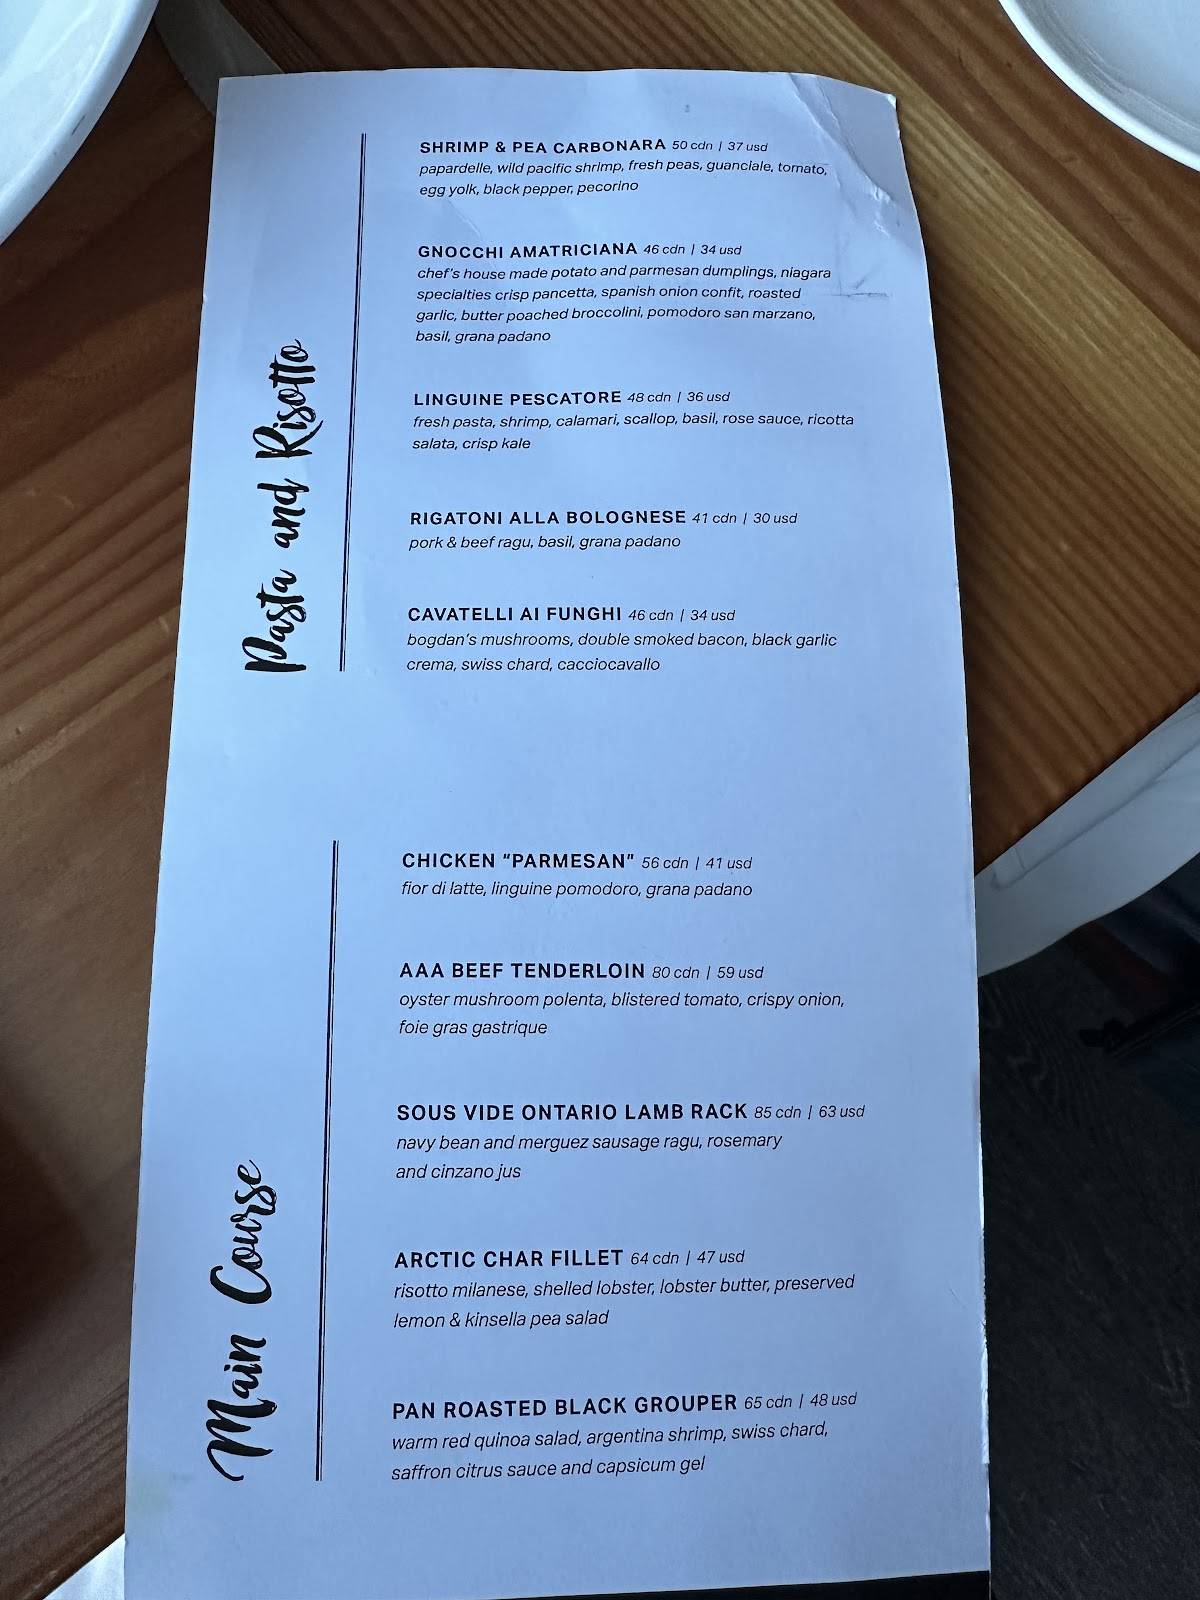 Pasta and Risotto
SHRIMP & PEA CARBONARA 50 cdn | 37 usd
papardelle, wild pacific shrimp, fresh peas, guanciale, tomato,
egg yolk, black pepper, pecorino
GNOCCHI AMATRICIANA 46 cdn | 34 usd
chef's house made potato and parmesan dumplings, niagara
specialties crisp pancetta, spanish onion confit, roasted
garlic, butter poached broccolini, pomodoro san marzano,
basil, grana padano
LINGUINE PESCATORE 48 cdn | 36 usd
fresh pasta, shrimp, calamari, scallop, basil, rose sauce, ricotta
salata, crisp kale
RIGATONI ALLA BOLOGNESE 41 cdn | 30 usd
pork & beef ragu, basil, grana padano
CAVATELLI AI FUNGHI 46 cdn | 34 usd
bogdan's mushrooms, double smoked bacon, black garlic
crema, swiss chard, cacciocavallo
Main Course
CHICKEN "PARMESAN" 56 cdn | 41 usd
fior di latte, linguine pomodoro, grana padano
AAA BEEF TENDERLOIN 80 cdn | 59 usd
oyster mushroom polenta, blistered tomato, crispy onion,
foie gras gastrique
SOUS VIDE ONTARIO LAMB RACK 85 cdn | 63 usd
navy bean and merguez sausage ragu, rosemary
and cinzano jus
ARCTIC CHAR FILLET 64 cdn | 47 usd
risotto milanese, shelled lobster, lobster butter, preserved
lemon & kinsella pea salad
PAN ROASTED BLACK GROUPER 65 cdn | 48 usd
warm red quinoa salad, argentina shrimp, swiss chard,
saffron citrus sauce and capsicum gel